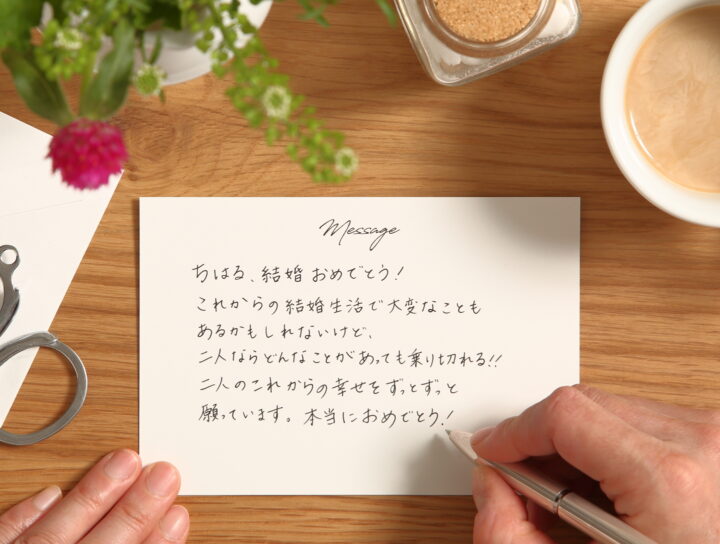 Message
ちはる、結婚おめでとう!
これからの結婚生活で大変なことも
あるかもしれないけど、
二人ならどんなことがあっても乗り切れる!!
二人のこれからの幸せをずっとずっと
願っています。本当におめでとう!